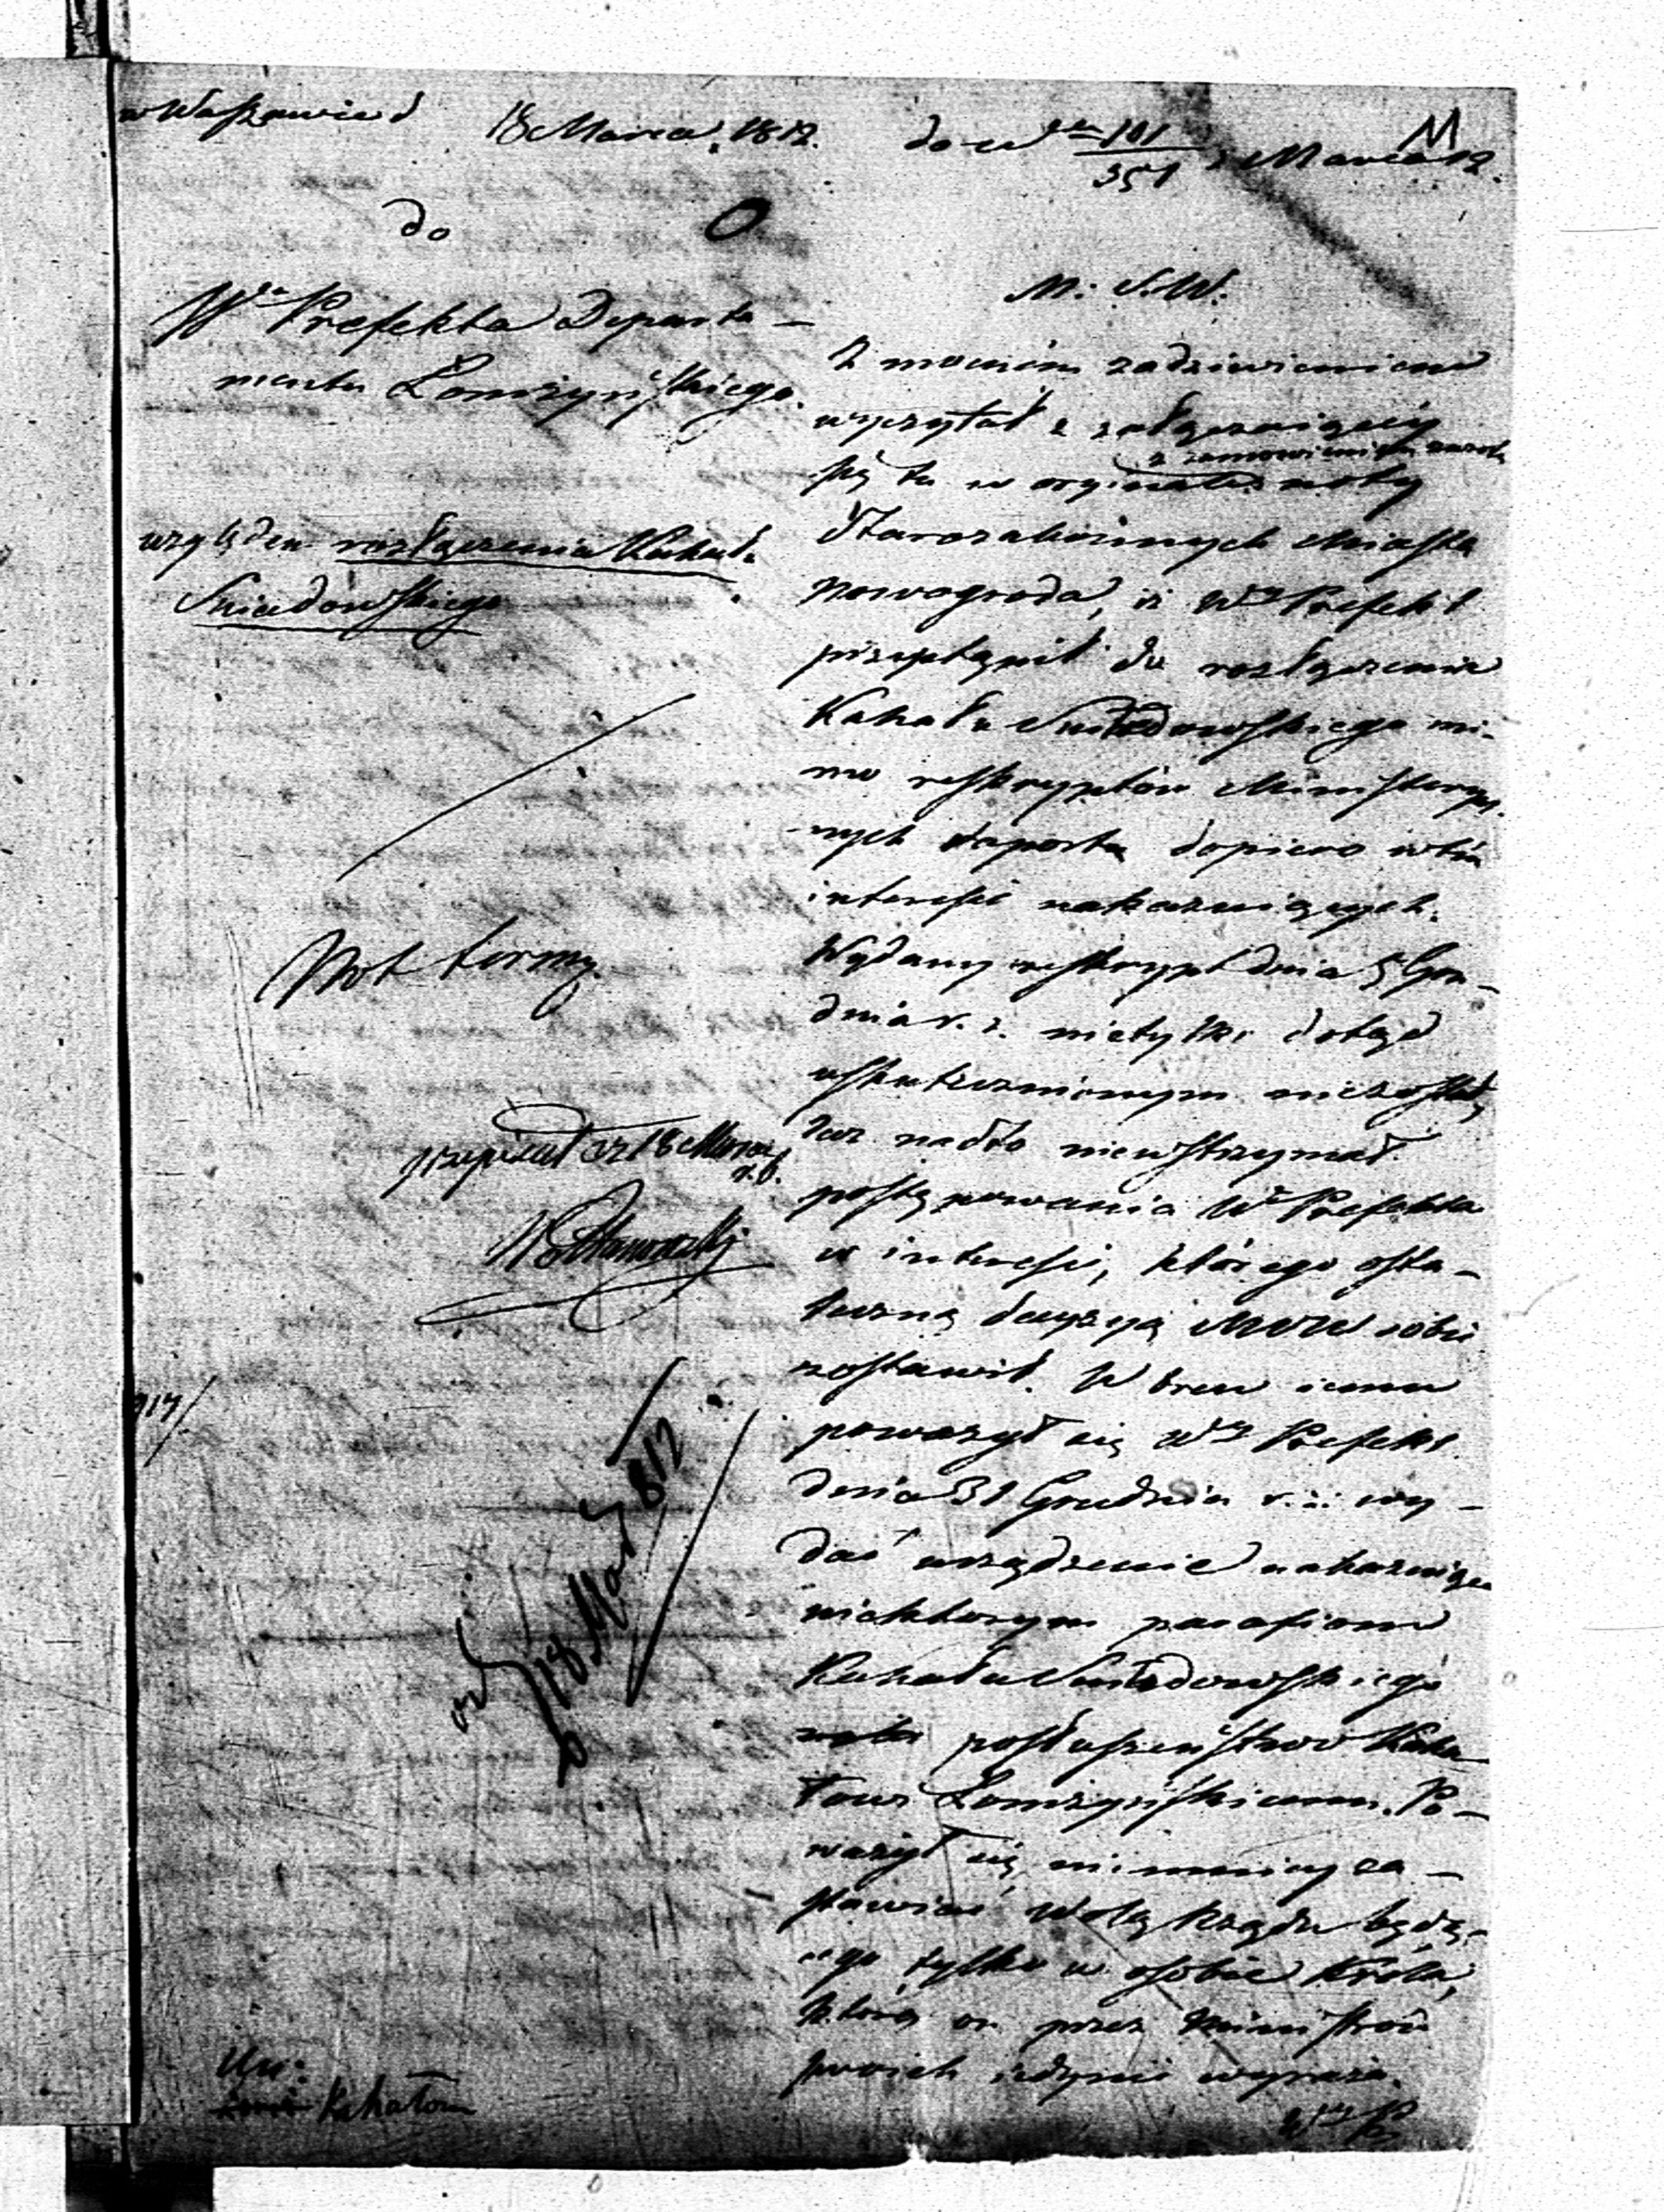 w Warszawie d 18 Marca 1812.
do Nru 101/351 z Marca 12.
11
do
Wgo Prefekta Departa-
mentu Łomżyńskiego.
względem rozłączenia Kahału
Sniadowskiego
18 Marca
r. b.
18 Mar 812
Kahałom
M. S. W.
Z mocnim zadziwieniem
wyczytał z załączaiącey
się tu w oryginale noty
z zamowieniem zwrotu
Starozakonnych Miasta
Nowogroda, iż Wny Prefekt
przystąpił do rozłączenia
Kahału Sniadowskiego mi-
mo reskryptów Ministeryal-
nych raportu dopiero w tém
interesie nakazuiących.
Wydany reskrypt dnia 5 Gru-
dnia r. z. nietylko dotąd
uskutecznionym niezostał,
lecz nadto niewstrzymał
postępowania Wo Prefekta
w interesie, którego osta-
teczną decyzyą MSW sobie
zostawił. W brew iemu
poważył się Wny Prefekt
dnia 31 Grudnia r. z. wy-
dać urządzenie nakazuiące
niektorym parafiom
Kahału Sniadowskiego
posłuszeństwo Kaha-
łowi Łomżyńskiemu. Po-
ważył się niemniey za-
stawiać wolą Rządu będą-
cego tylko w osobie Króla,
którą on przez Ministrów
swoich iedynie wyraża.
Wny P